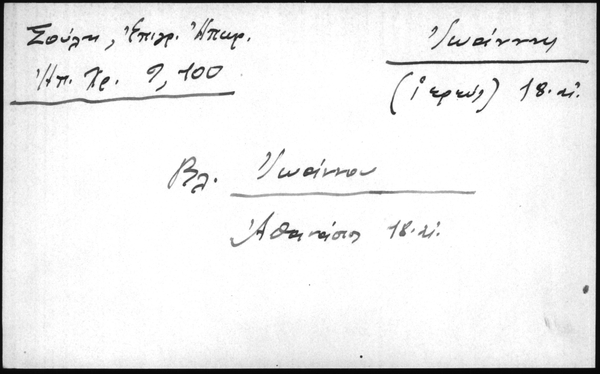 Σούλη, Ἐπιγρ. Ἠπειρ.
Ἠπ. Χρ. 9, 100
Ἰωάννης
(ἱερεύς) 18. αἰ.
Βλ. Ἰωάννου
Ἀθανάσιος 18. αἰ.